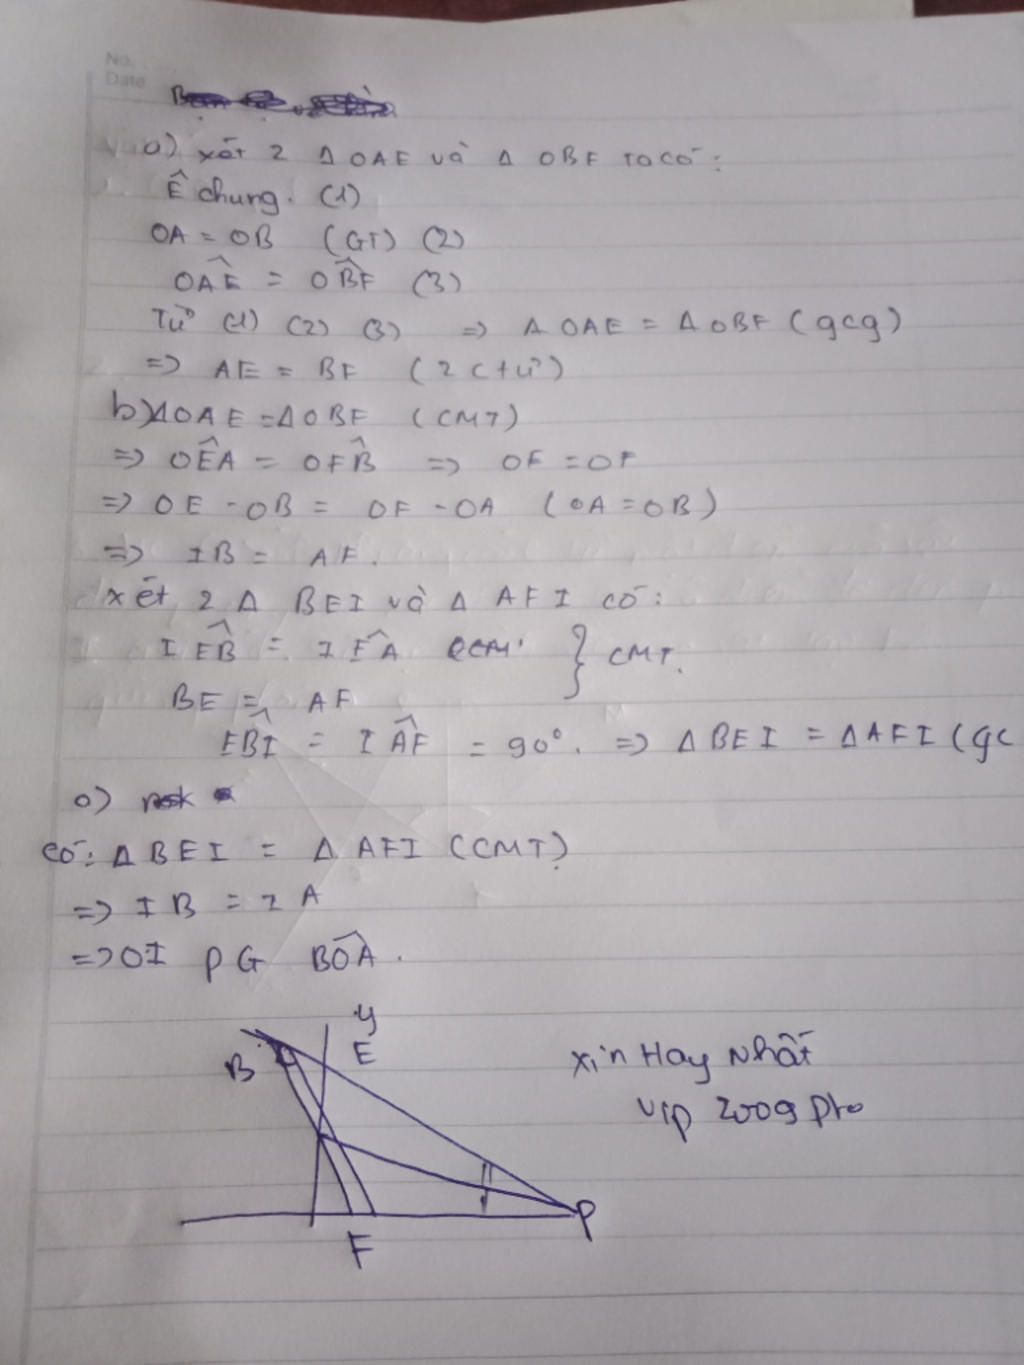 No.
Date
a) xét 2 Δ OAE và Δ OBF ta có:
Ê chung. (1)
OA = OB (GT) (2)
OÂE = OB̂F (3)
Từ (1) (2) (3) => Δ OAE = Δ OBF (gcg)
=> AE = BF (2 c t ư)
b) ΔOAE = ΔOBF (CMT)
=> OÊA = OF̂B => OE = OF
=> OE - OB = OF - OA (OA = OB)
=> IB = AF.
xét 2 Δ BEI và Δ AFI có:
IÊB = IF̂A } CMT.
BE = AF
EB̂I = IÂF = 90°. => Δ BEI = Δ AFI (gc
c)
có: Δ BEI = Δ AFI (CMT)
=> IB = IA
=> OI PG BÔA.
y
B E
F P
xin Hay Nhất
vip 2009 pro